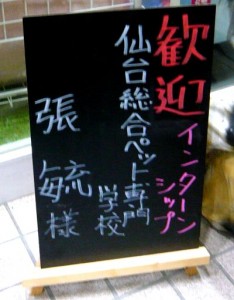 歓迎
インターンシップ
仙台総合ペット専門
学校
張 毓様